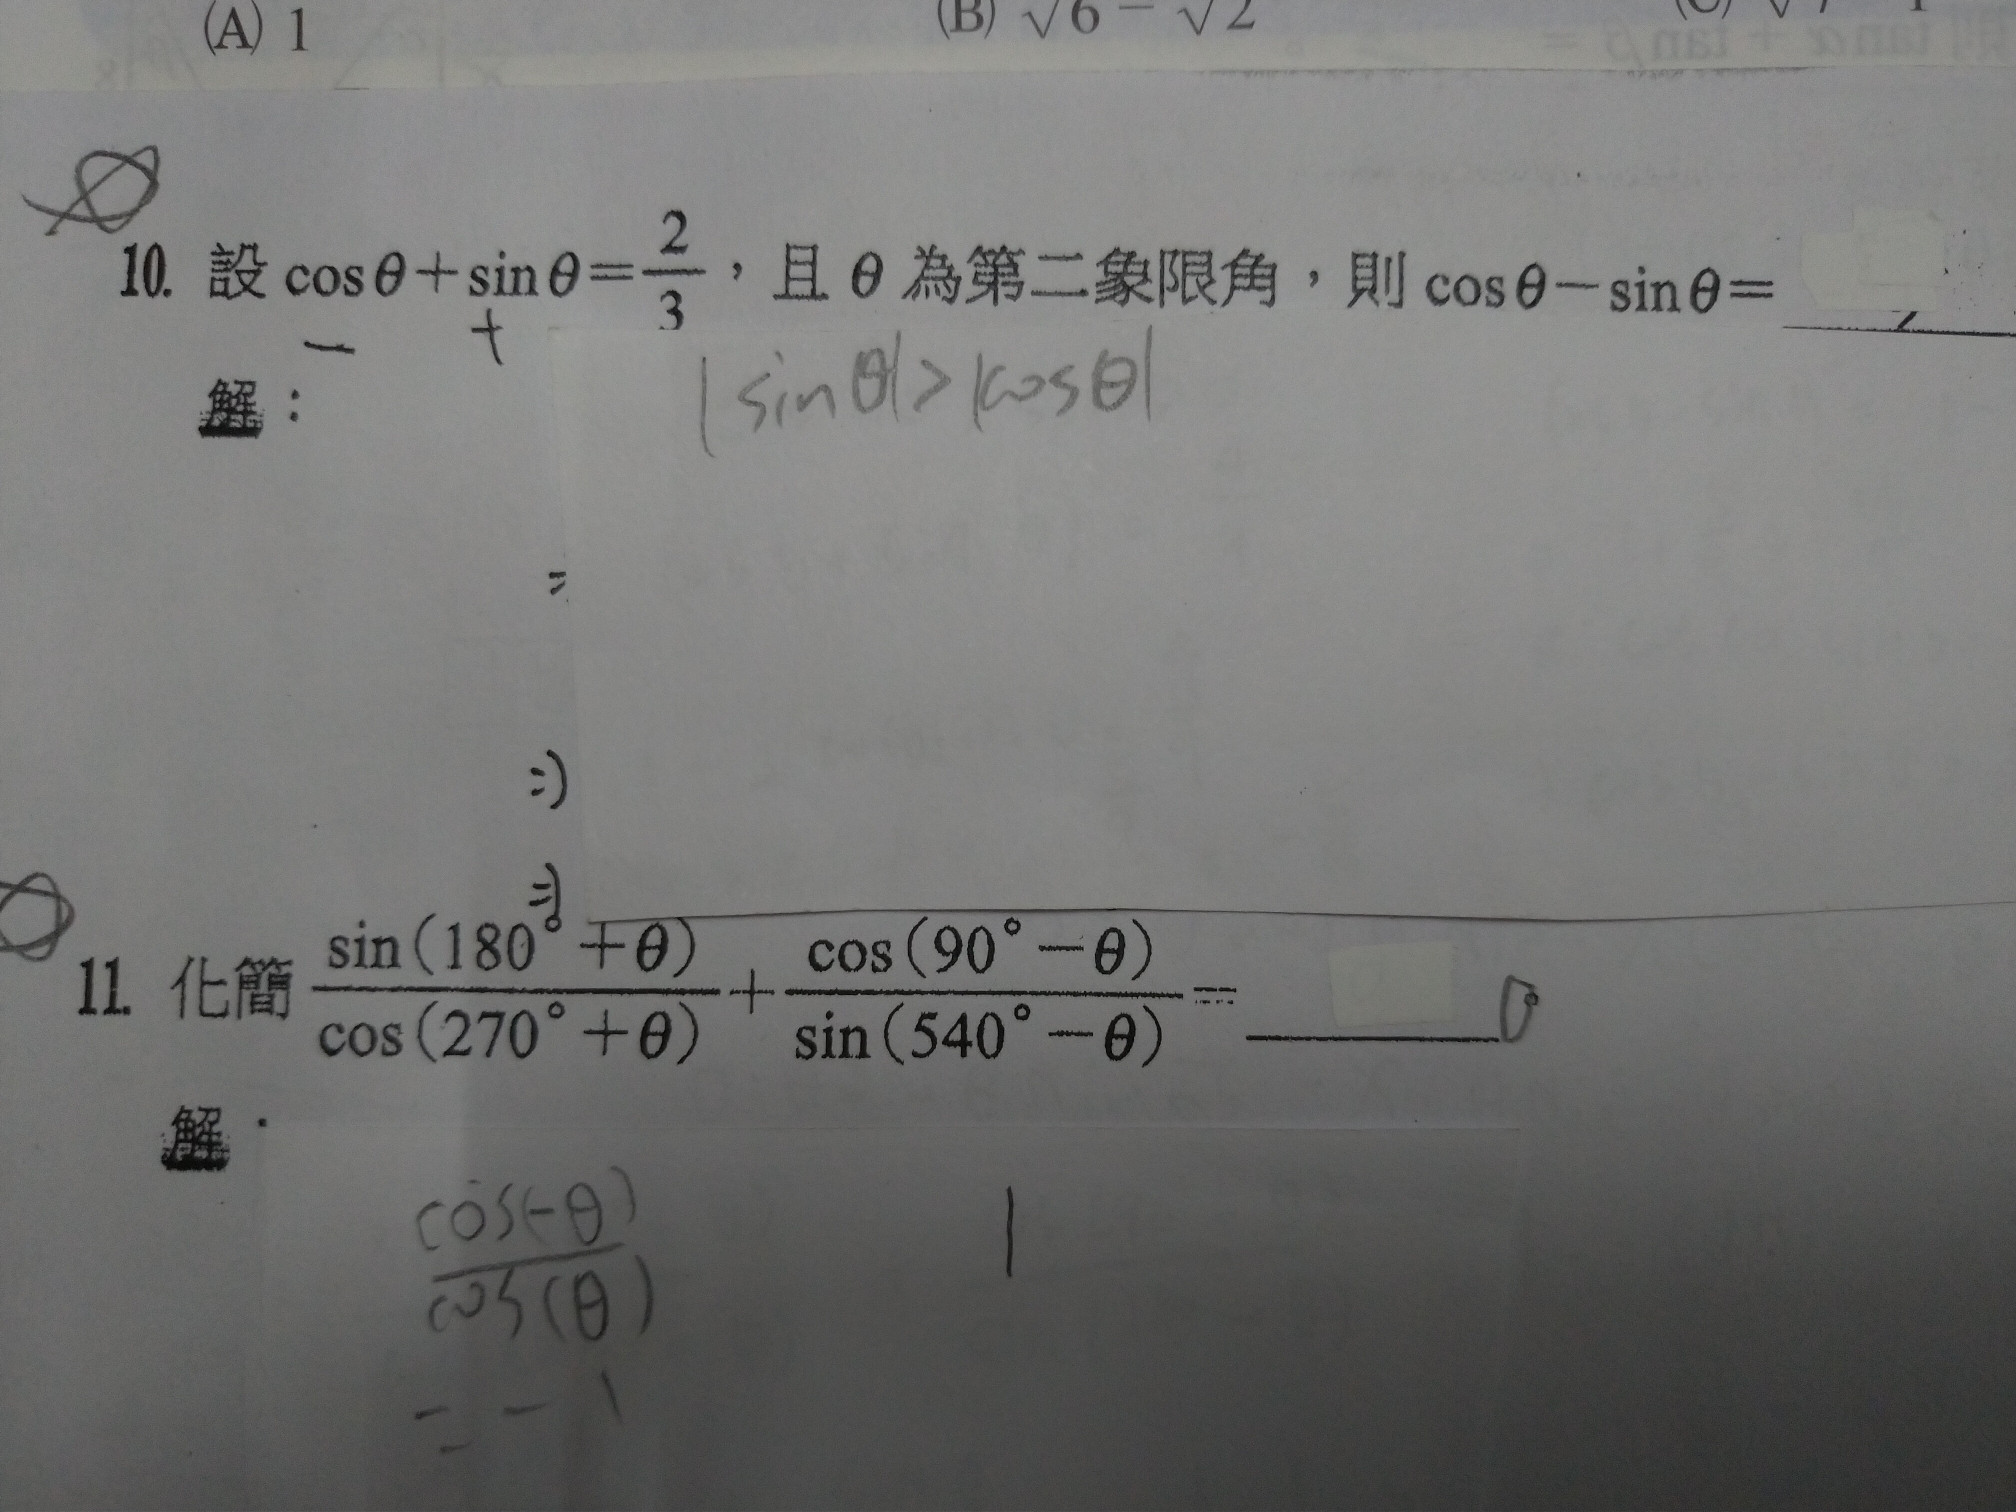 (A) 1 (B) √6 − √2
10. 設 cosθ+sinθ=2/3,且 θ 為第二象限角,則 cosθ−sinθ=
− +
|sinθ|>|cosθ|
解:
11. 化簡 sin(180°+θ)/cos(270°+θ) + cos(90°−θ)/sin(540°−θ) = 0
解
cos(-θ)/cos(θ) 1
= -1